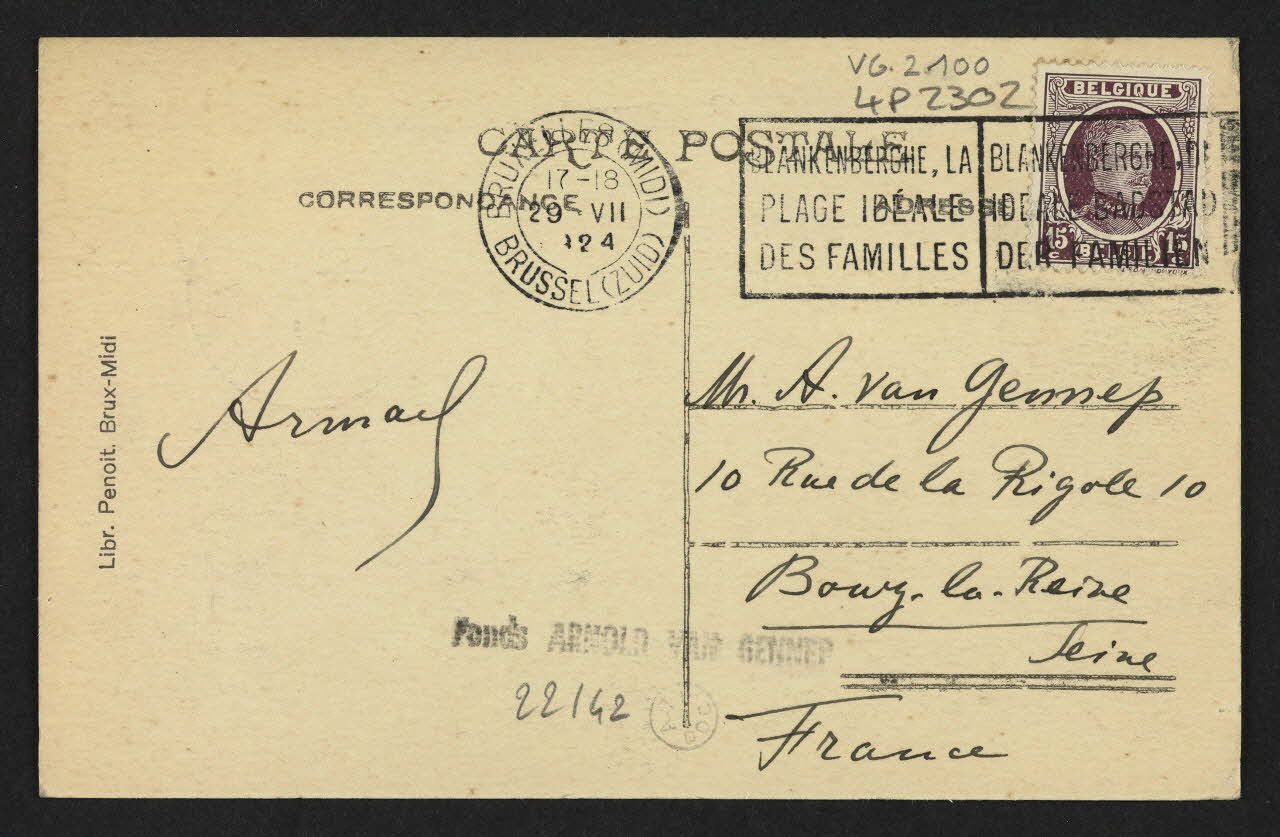 VG. 2.100
4P2302
BELGIQUE
CARTE POSTALE
BRUXELLES (MIDI)
17-18
29 VII
24
BRUSSEL (ZUID)
BLANKENBERGHE, LA
PLAGE IDÉALE
DES FAMILLES
BLANKENBERGHE, DE
IDEALE BADSTAD
DER FAMILIEN
15 15
CORRESPONDANCE
ADRESSE
Armad
Mr. A. van Gennep
10 Rue de la Rigole 10
Bourg-la-Reine
Seine
France
Libr. Penoit. Brux-Midi
Fonds ARNOLD VAN GENNEP
22/42